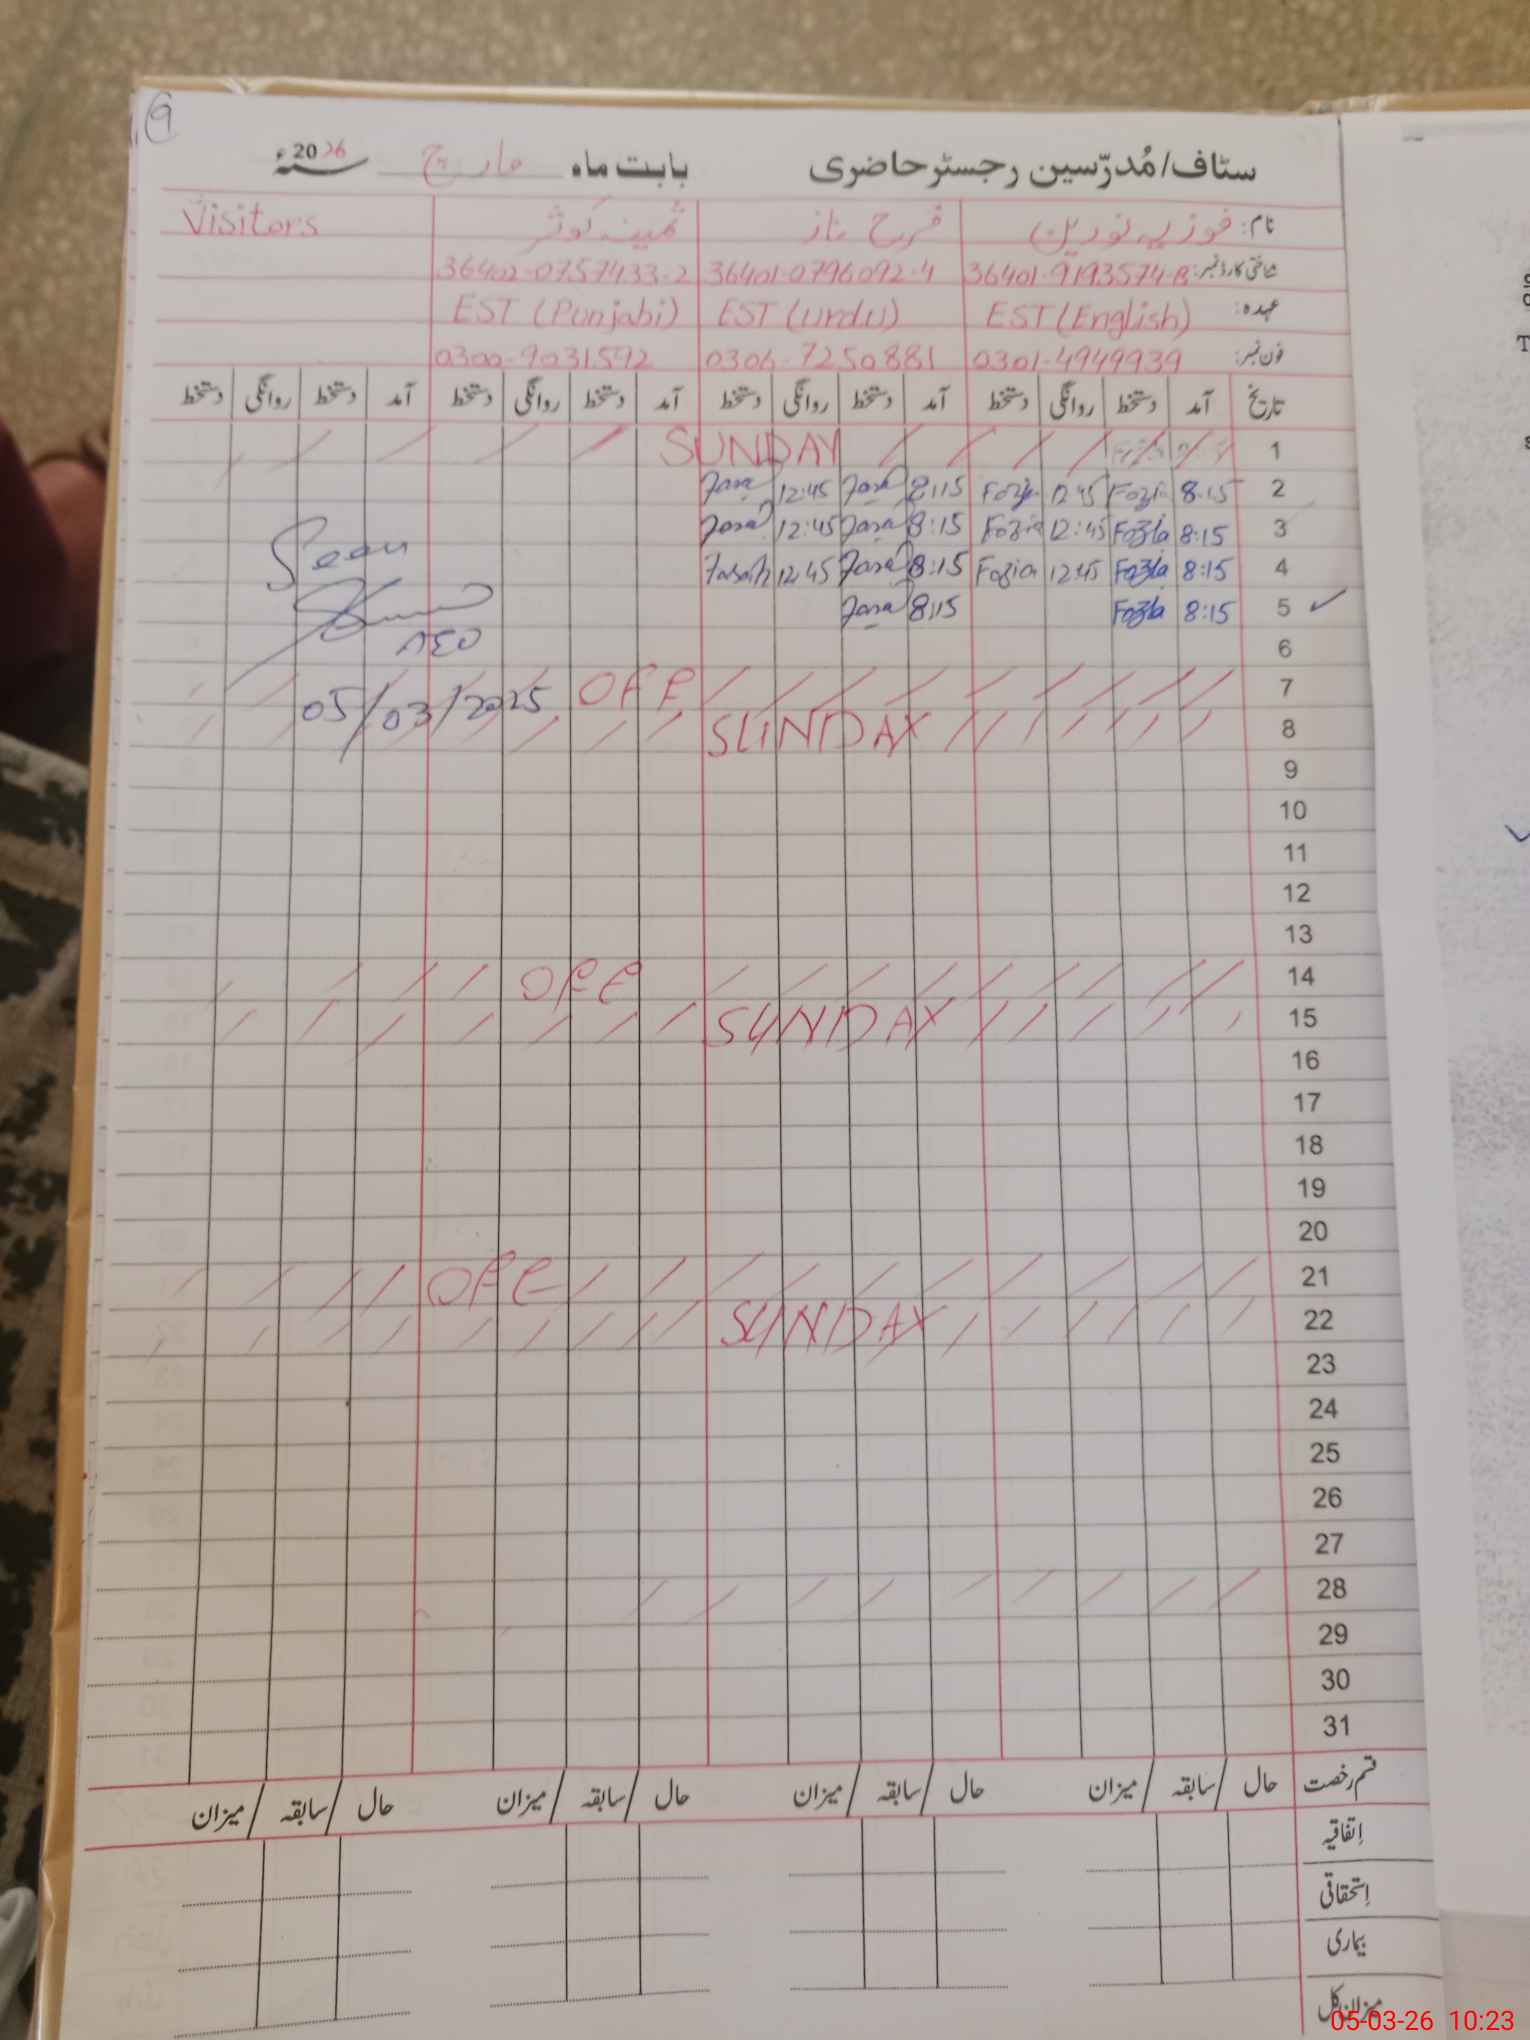 9
سٹاف/مُدرّسین رجسٹر حاضری بابت ماہ مارچ سنہ 2026ء
نام: فوزیہ نورین فرح ناز ثمینہ کوثر Visitors
شناختی کارڈ نمبر: 36401-9193574-8 36401-0796092-4 36402-0757433-2
عہدہ: EST (English) EST (Urdu) EST (Punjabi)
فون نمبر: 0301-4949939 0306-7250881 0300-9031592
تاریخ آمد دستخط روانگی دستخط آمد دستخط روانگی دستخط آمد دستخط روانگی دستخط آمد دستخط روانگی دستخط
1 SUNDAY
2 8:15 Fozia 12:45 Fozia 8:15 Fara 12:45 Fara
3 8:15 Fozia 12:45 Fozia 8:15 Fara 12:45 Fara
4 8:15 Fozia 12:45 Fozia 8:15 Fara 12:45 Farah
5 8:15 Fozia 8:15 Fara
Seen
AEO
05/03/2025
6
7 OFF
8 SUNDAY
9
10
11
12
13
14 OFF
15 SUNDAY
16
17
18
19
20
21 OFF
22 SUNDAY
23
24
25
26
27
28
29
30
31
قسم رخصت حال / سابقہ / میزان حال / سابقہ / میزان حال / سابقہ / میزان حال / سابقہ / میزان
اِتفاقیہ
اِستحقاقی
بیماری
میزان کل
05-03-26 10:23